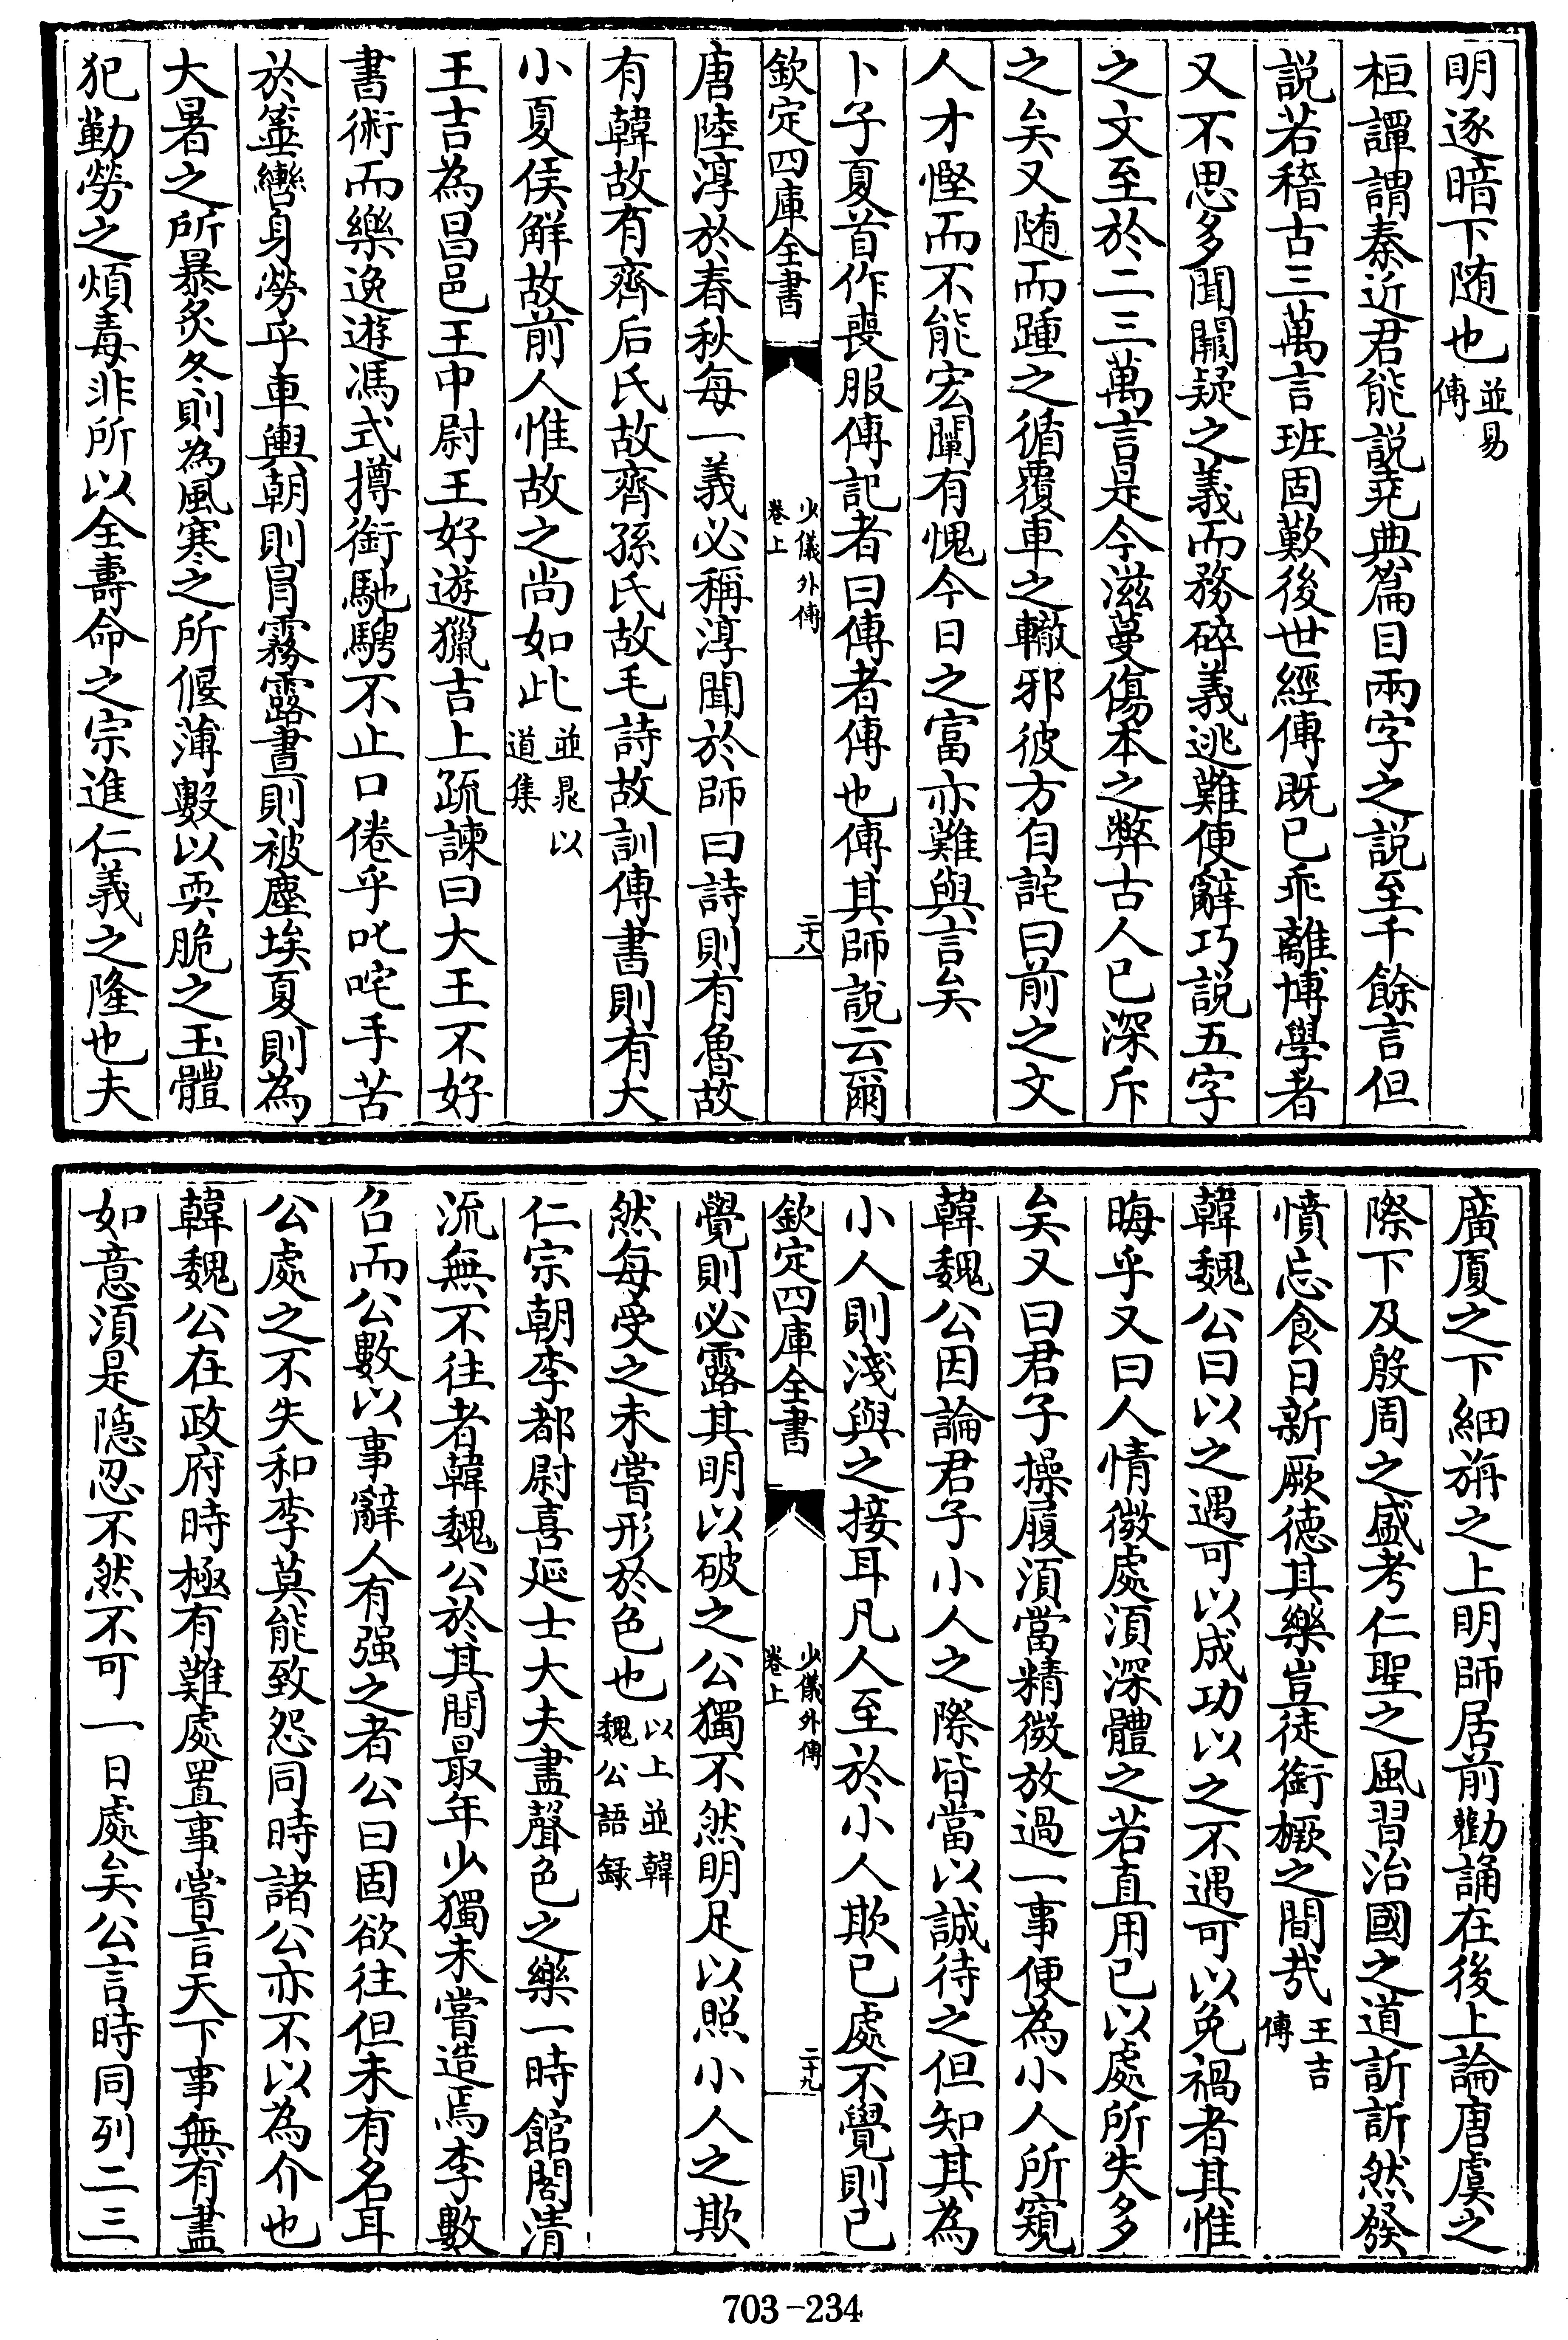 明逐暗下随也並易傳
桓譚謂秦近君能説堯典篇目兩字之説至千餘言但
説若稽古三萬言班固歎後世經傳既已乖離博學者
又不思多聞闕疑之義而務碎義逃難便辭巧説五字
之文至於二三萬言是今滋蔓傷本之弊古人已深斥
之矣又随而踵之循覆車之轍邪彼方自詫曰前之文
人才慳而不能宏闡有愧今日之富亦難與言矣
卜子夏首作喪服傳記者曰傳者傳也傳其師説云爾
欽定四庫全書 少儀外傳卷上 二十八
唐陸淳於春秋每一義必稱淳聞於師曰詩則有魯故
有韓故有齊后氏故齊孫氏故毛詩故訓傳書則有大
小夏侯解故前人惟故之尚如此並晁以道集
王吉為昌邑王中尉王好遊獵吉上疏諫曰大王不好
書術而樂逸遊馮式撙銜馳騁不止口倦乎叱咤手苦
於箠轡身勞乎車輿朝則冒霧露晝則被塵埃夏則為
大暑之所暴炙冬則為風寒之所偃薄數以耎脆之玉體
犯勤勞之煩毒非所以全壽命之宗進仁義之隆也夫
廣厦之下細旃之上明師居前勸誦在後上論唐虞之
際下及殷周之盛考仁聖之風習治國之道訢訢然發
憤忘食日新厥德其樂豈徒銜橛之間哉王吉傳
韓魏公曰以之遇可以成功以之不遇可以免禍者其惟
晦乎又曰人情微處須深體之若直用已以處所失多
矣又曰君子操履須當精微放過一事便為小人所窺
韓魏公因論君子小人之際皆當以誠待之但知其為
小人則淺與之接耳凡人至於小人欺已處不覺則已
欽定四庫全書 少儀外傳卷上 二十九
覺則必露其明以破之公獨不然明足以照小人之欺
然每受之未嘗形於色也以上並韓魏公語録
仁宗朝李都尉喜延士大夫盡聲色之樂一時館閣清
流無不往者韓魏公於其間最年少獨未嘗造焉李數
召而公數以事辭人有强之者公曰固欲往但未有名耳
公處之不失和李莫能致怨同時諸公亦不以為介也
韓魏公在政府時極有難處置事嘗言天下事無有盡
如意須是隠忍不然不可一日處矣公言時同列二三
703-234